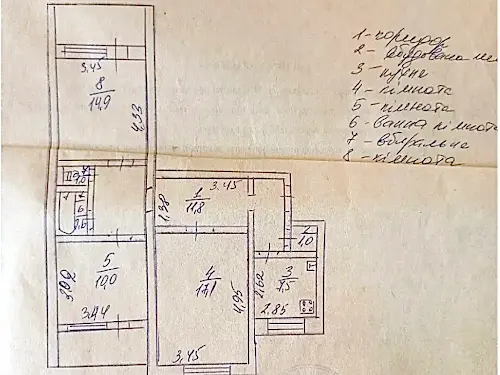 1 - коридор
2 - вбудована
3 - кухне
4 - кімната
5 - кімната
6 - ванна кімната
7 - вбиральне
8 - кімната
3.45
8/14,9
4,33
1/11,8
3.45
1,38
2/1,0
5/10,0
3,02
3,44
4/17,1
4,95
3.45
2,62
3/7,5
2.85